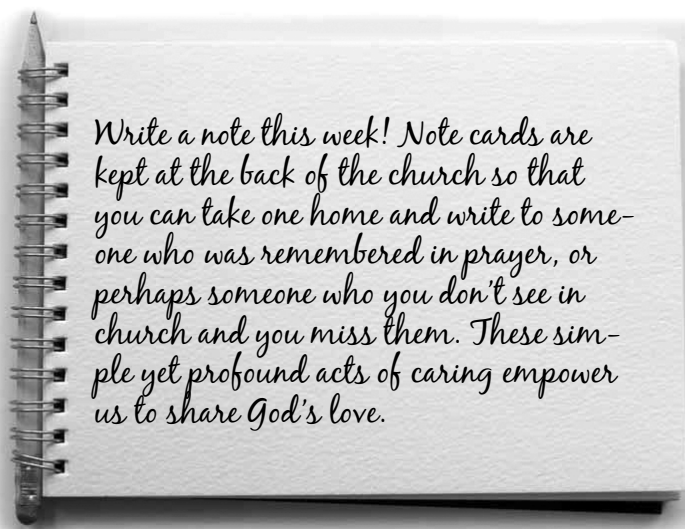 Write a note this week! Note cards are
kept at the back of the church so that
you can take one home and write to some-
one who was remembered in prayer, or
perhaps someone who you don't see in
church and you miss them. These sim-
ple yet profound acts of caring empower
us to share God's love.